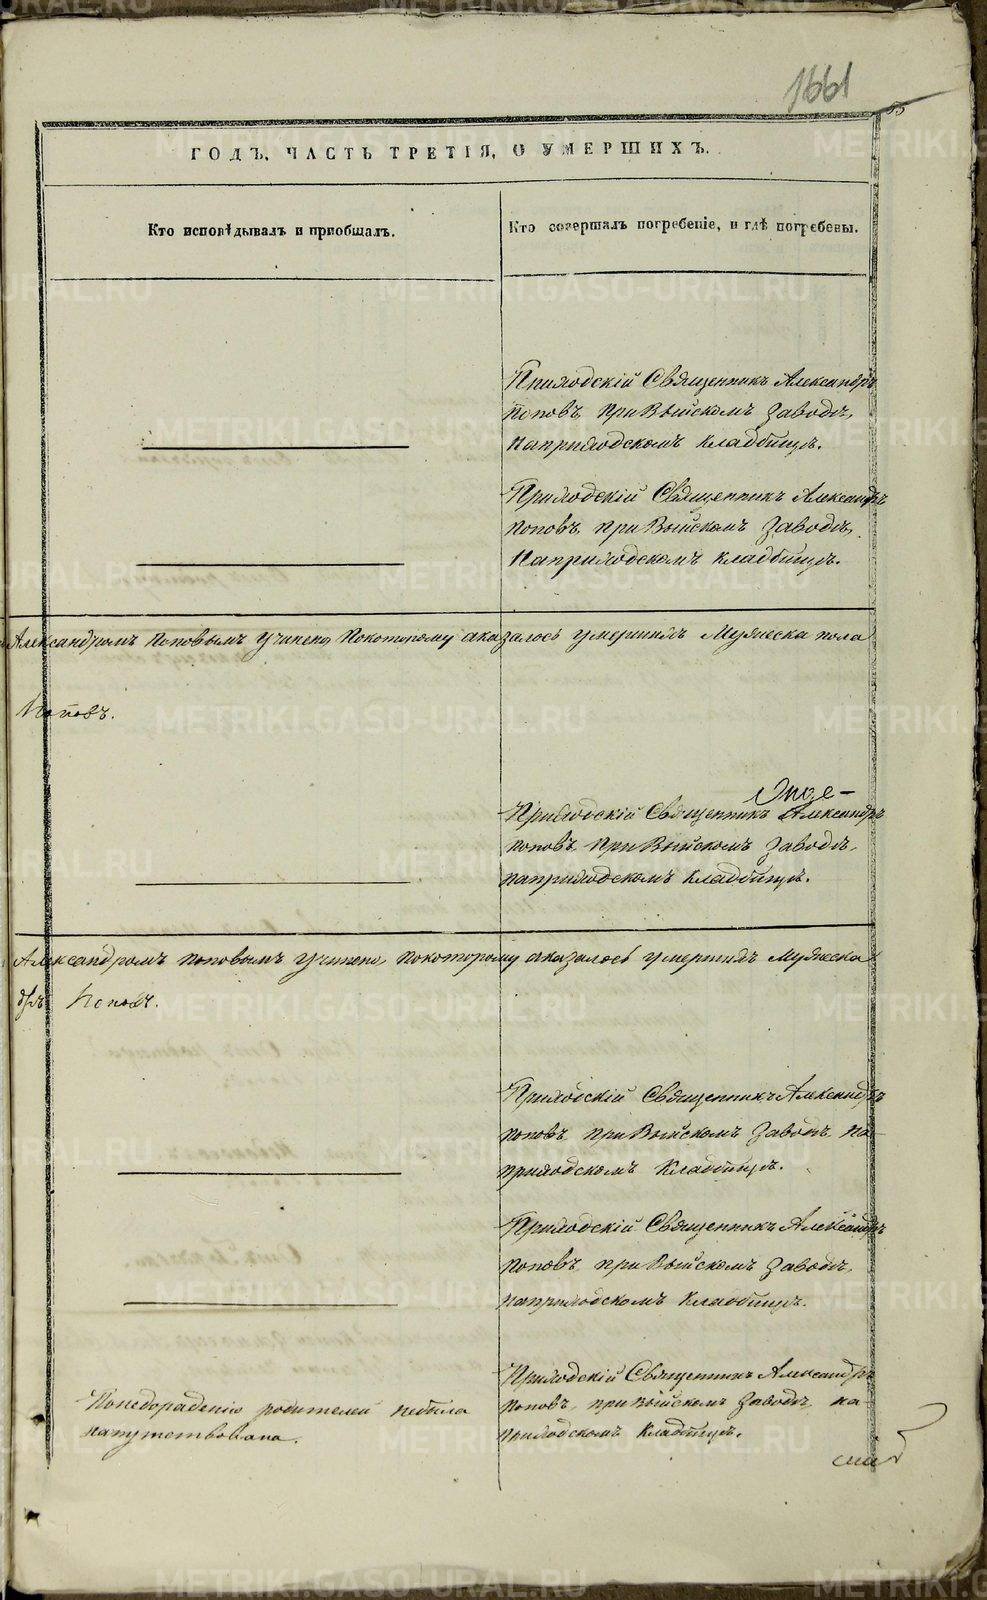 1661
ГОДЪ, ЧАСТЬ ТРЕТІЯ, О УМЕРШИХЪ.
Кто исповѣдывалъ и пріобщалъ.
Кто совершалъ погребеніе, и гдѣ погребены.
Приходскій Священникъ Александръ
Поповъ, при Выйскомъ Заводѣ,
на приходскомъ кладбищѣ.
Приходскій Священникъ Александръ
Поповъ, при Выйскомъ Заводѣ,
на приходскомъ кладбищѣ.
Александромъ Поповымъ учинено, покоторому аказалось умершихъ Мужеска пола
Поповъ.
Приходскій Священникъ Александръ
Поповъ, при Выйскомъ Заводѣ,
на приходскомъ кладбищѣ.
Александромъ Поповымъ учинено, покоторому аказалось умершихъ Мужеска
дръ Поповъ.
Приходскій Священникъ Александръ
Поповъ, при Выйскомъ Заводѣ, на
приходскомъ Кладбищѣ.
Приходскій Священникъ Александръ
Поповъ, при Выйскомъ Заводѣ,
на приходскомъ Кладбищѣ.
Приходскій Священникъ Александръ
Поповъ, при Выйскомъ Заводѣ, на
приходскомъ Кладбищѣ.
Понедорадению родителей небыла
напутствована.
METRIKI.GASO-URAL.RU